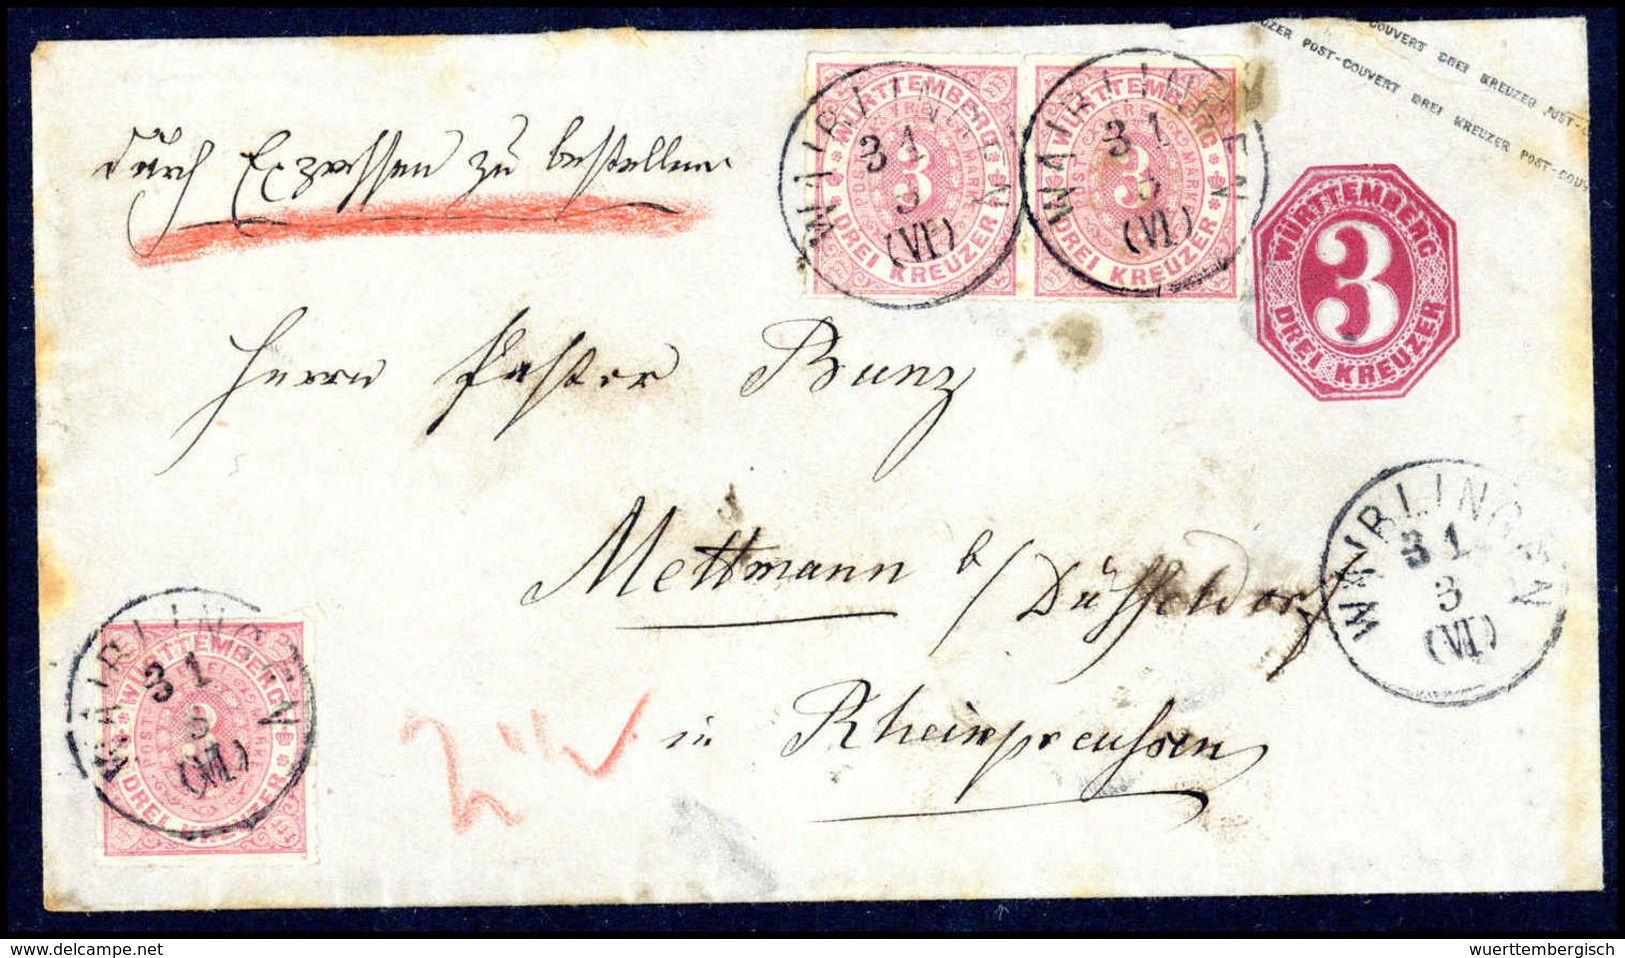 KREUZER POST-COUVERT DREI KREUZER POST-COUV
COUVERT DREI KREUZER POST-C
durch Expressen zu bestellen
WÜRTTEMBERG
FREI
POST MARKE
3
DREI KREUZER
WAIBLINGEN
31
3
(VI)
WÜRTTEMBERG
FREI
POST MARKE
3
DREI KREUZER
WAIBLINGEN
31
3
(VI)
WÜRTTEMBERG
3
DREI KREUZER
Herrn Pastor Bunz
Mettmann b/Düsseldorf
in Rheinpreussen
WAIBLINGEN
31
3
(VI)
WÜRTTEMBERG
FREI
POST MARKE
3
DREI KREUZER
WAIBLINGEN
31
3
(VI)
© delcampe.net
wuerttembergisch